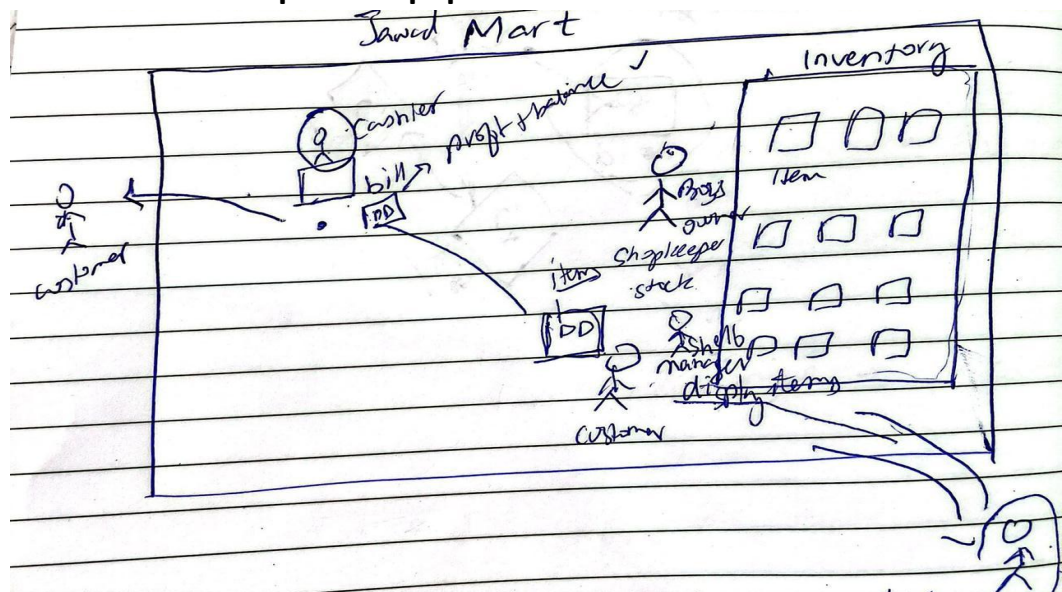 Jawad Mart
Inventory
Cashier
profit + balance
bill
item
owner
Shopkeeper
stock
items
customer
manager
display items
customer